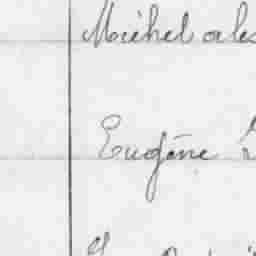 Michel ale
Eugène